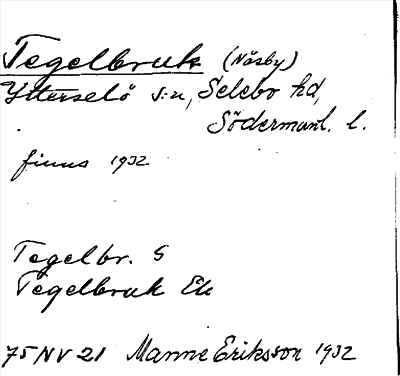 Tegelbruk (Näsby)
Ytterselö s:n, Selebo hd,
Södermanl. l.
finns 1932
Tegelbr. G
Tegelbruk Ek
75 NV 21 Manne Eriksson 1932